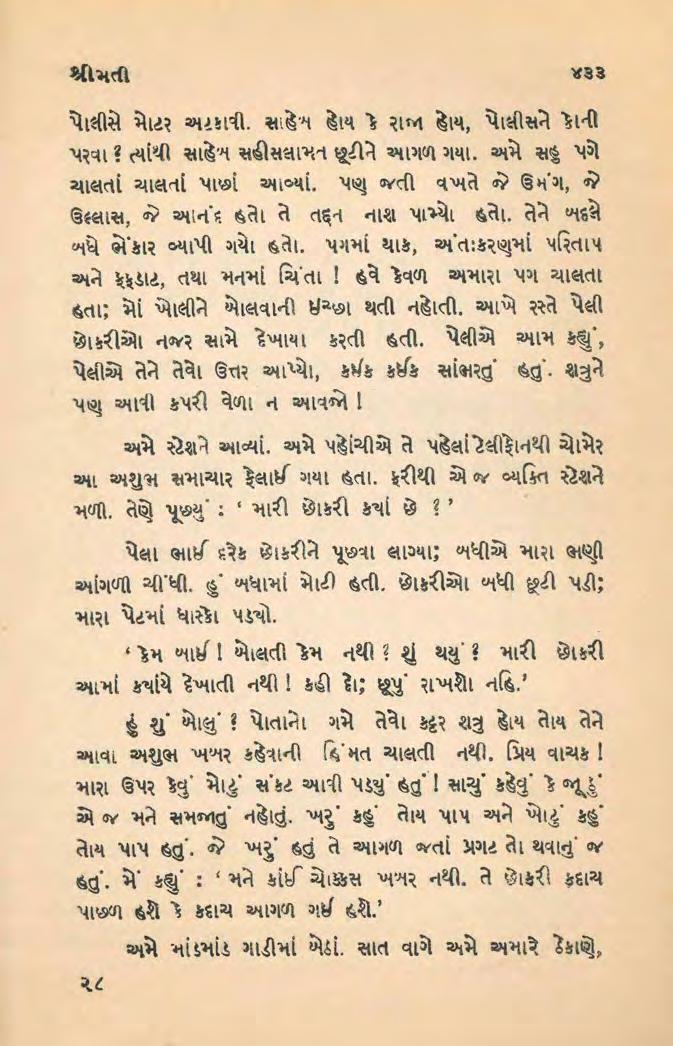 શ્રીમતી ૪૩૩
પોલીસે મોટર અટકાવી. સાહેબ હોય કે રાજા હોય, પોલીસને કોની
પરવા? ત્યાંથી સાહેબ સહીસલામત છૂટીને આગળ ગયા. અમે સહુ પગે
ચાલતાં ચાલતાં પાછાં આવ્યાં. પણ જતી વખતે જે ઉમંગ, જે
ઉલ્લાસ, જે આનંદ હતો તે તદ્દન નાશ પામ્યો હતો. તેને બદલે
બધે ભેંકાર વ્યાપી ગયો હતો. પગમાં થાક, અંતઃકરણમાં પરિતાપ
અને ફફડાટ, તથા મનમાં ચિંતા ! હવે કેવળ અમારા પગ ચાલતા
હતા; મોં ખોલીને બોલવાની ઇચ્છા થતી નહોતી. આખે રસ્તે પેલી
છોકરીઓ નજર સામે દેખાયા કરતી હતી. પેલીએ આમ કહ્યું,
પેલીએ તેને તેવો ઉત્તર આપ્યો, કઈક કઈક સાંભરતું હતું. શત્રુને
પણ આવી કપરી વેળા ન આવજો !
અમે સ્ટેશને આવ્યાં. અમે પહોંચીએ તે પહેલાં ટેલીફોનથી ચોમેર
આ અશુભ સમાચાર ફેલાઈ ગયા હતા. ફરીથી એ જ વ્યક્તિ સ્ટેશને
મળી. તેણે પૂછ્યું : ‘ મારી છોકરી ક્યાં છે ? ’
પેલા ભાઈ દરેક છોકરીને પૂછવા લાગ્યા; બધીએ મારા ભણી
આંગળી ચીંધી. હું બધામાં મોટી હતી. છોકરીઓ બધી છૂટી પડી;
મારા પેટમાં ધાસ્કો પડ્યો.
‘ કેમ બાઈ ! બોલતી કેમ નથી ? શું થયું ? મારી છોકરી
આમાં ક્યાંયે દેખાતી નથી ! કહી દો; છૂપું રાખશો નહિ.’
હું શું બોલું ? પોતાનો ગમે તેવો કટ્ટર શત્રુ હોય તોય તેને
આવા અશુભ ખબર કહેવાની હિંમત ચાલતી નથી. પ્રિય વાચક !
મારા ઉપર કેવું મોટું સંકટ આવી પડ્યું હતું ! સાચું કહેવું કે જૂઠું
એ જ મને સમજાતું નહોતું. ખરું કહું તોય પાપ અને ખોટું કહું
તોય પાપ હતું. જે ખરું હતું તે આગળ જતાં પ્રગટ તો થવાનું જ
હતું. મેં કહ્યું : ‘ મને કાંઈ ચોક્કસ ખબર નથી. તે છોકરી કદાચ
પાછળ હશે કે કદાચ આગળ ગઈ હશે.’
અમે માંડમાંડ ગાડીમાં બેઠાં. સાત વાગે અમે અમારે ઠેકાણે,
૨૮